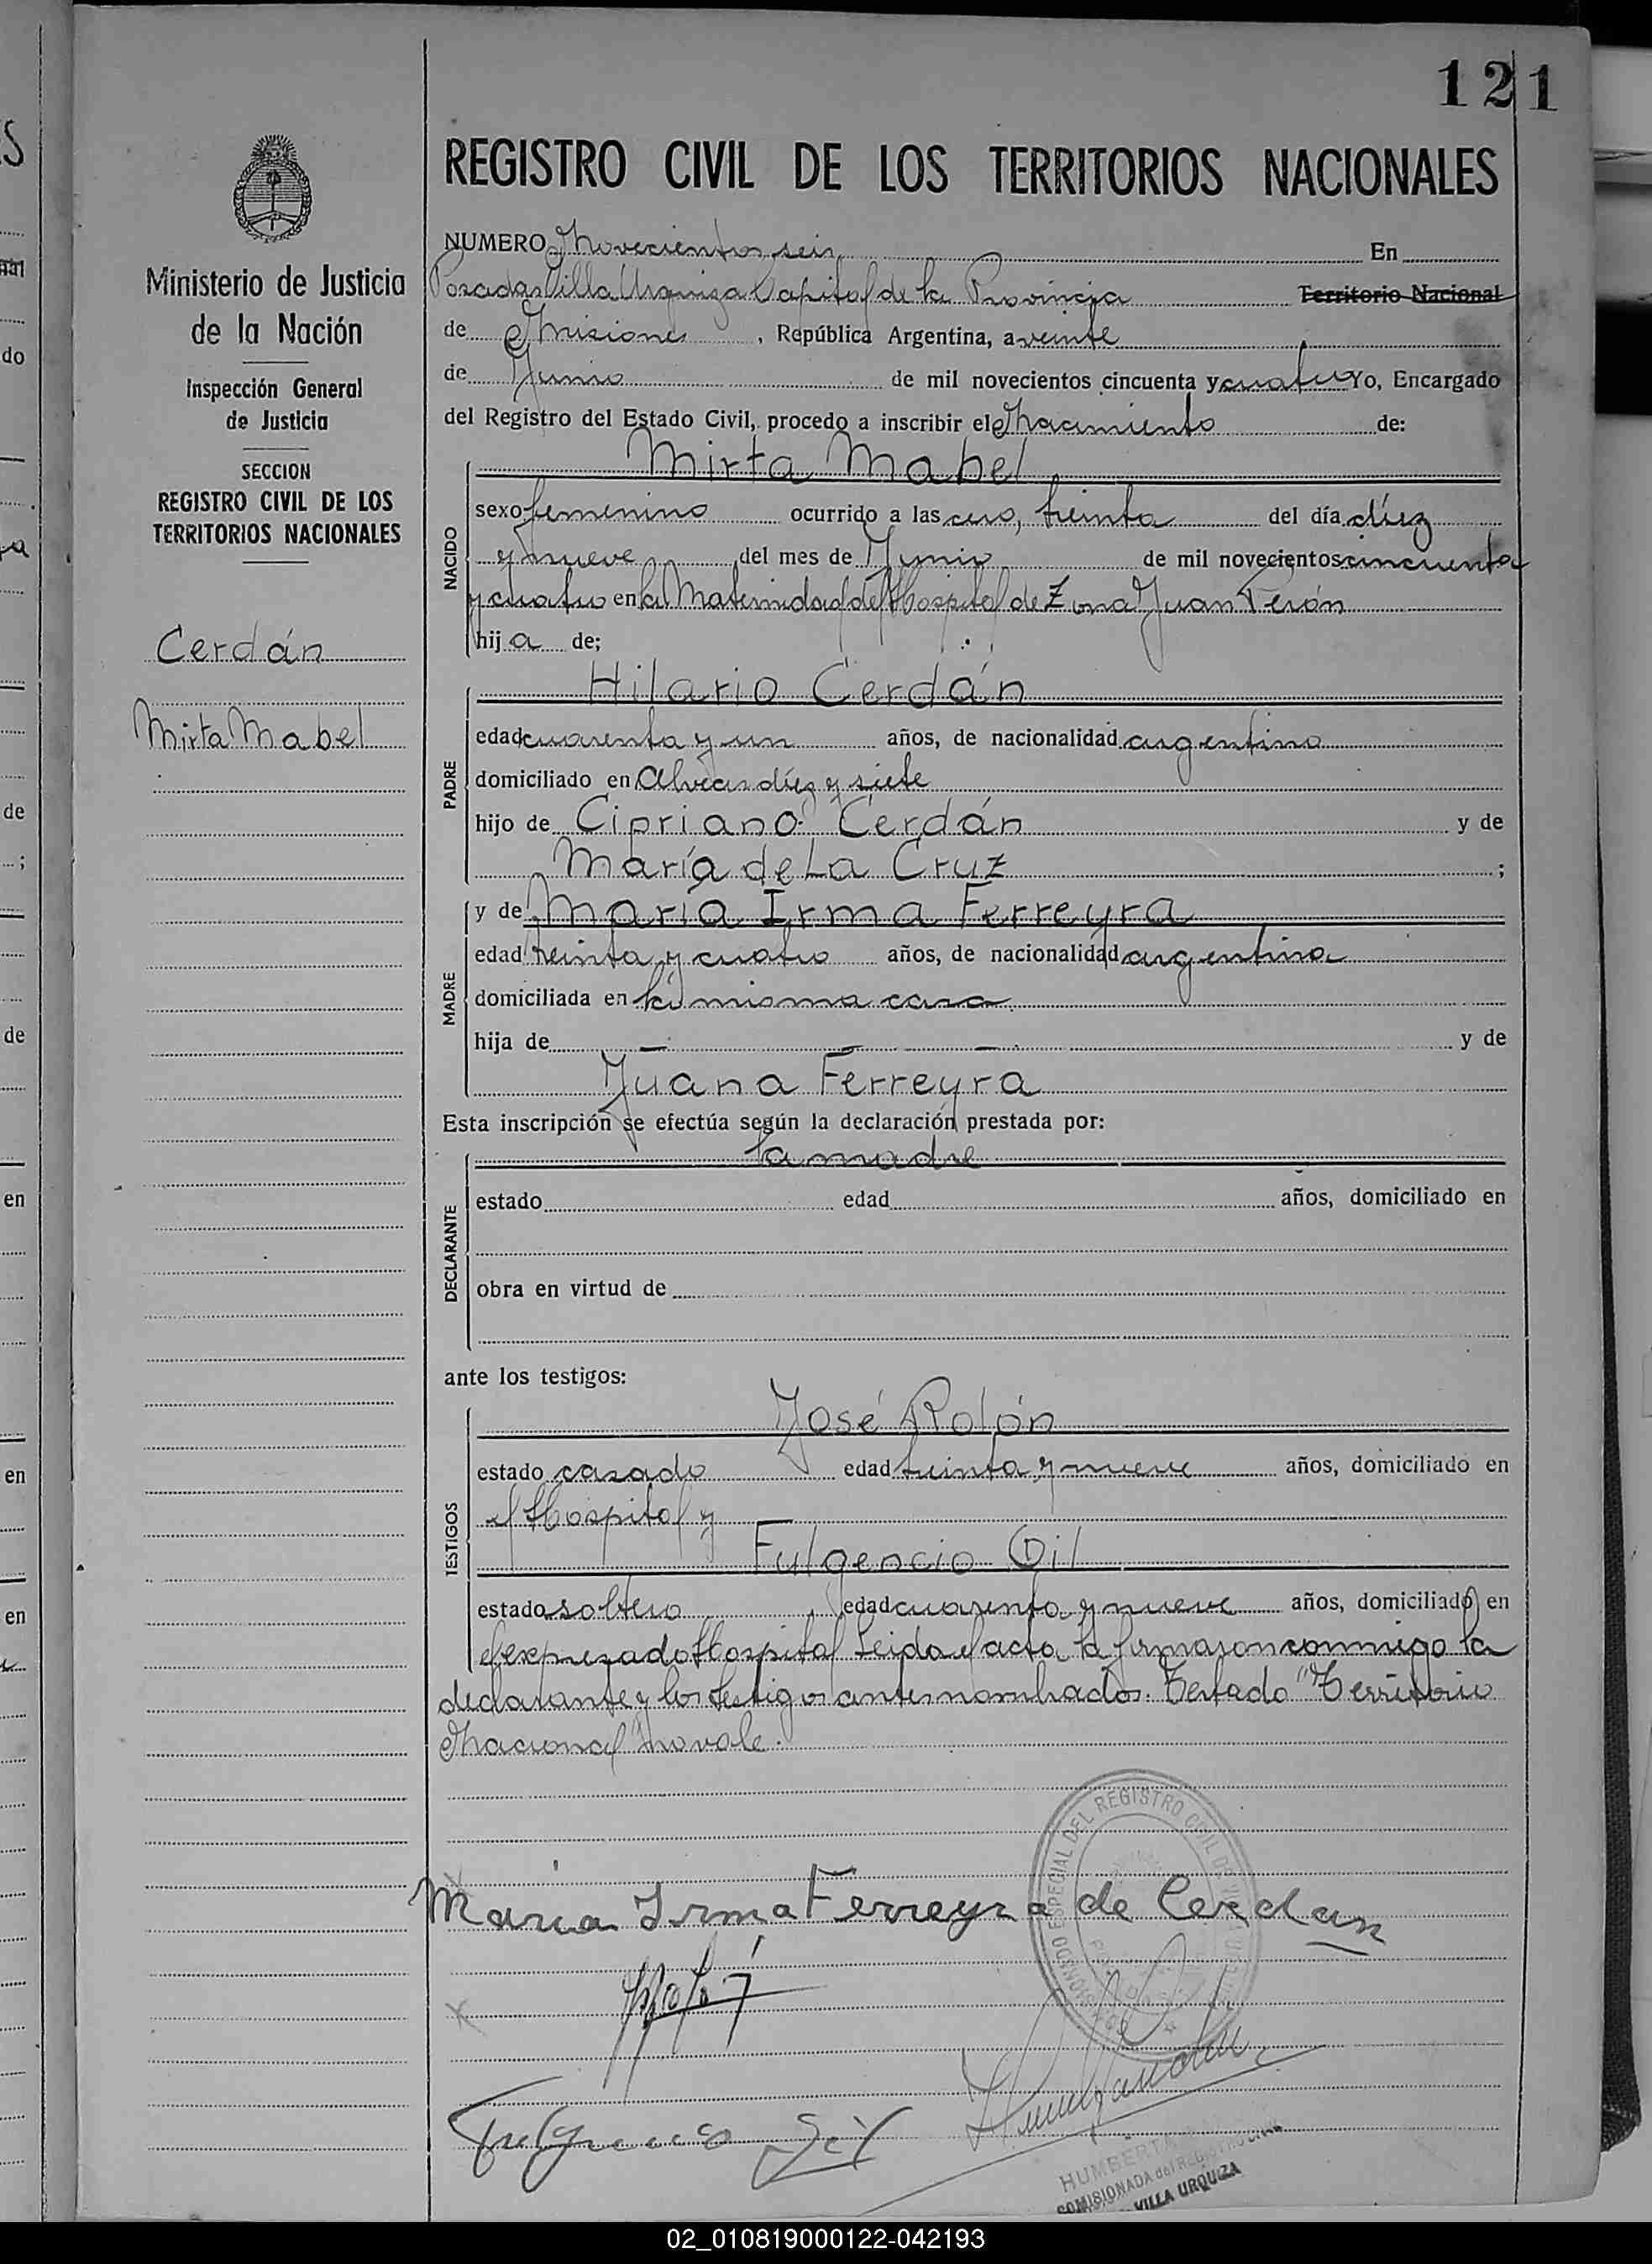 121
REGISTRO CIVIL DE LOS TERRITORIOS NACIONALES
Ministerio de Justicia
de la Nación
Inspección General
de Justicia
SECCION
REGISTRO CIVIL DE LOS
TERRITORIOS NACIONALES
Cerdán
Mirta Mabel
NUMERO Novecientos seis En
Posadas Villa Urquiza Capital de la Provincia Territorio Nacional
de Misiones, República Argentina, a veinte
de Junio de mil novecientos cincuenta y cuatro Yo, Encargado
del Registro del Estado Civil, procedo a inscribir el Nacimiento de:
Mirta Mabel
NACIDO
sexo femenino ocurrido a las cero, treinta del día diez
y nueve del mes de Junio de mil novecientos cincuenta
y cuatro en la Maternidad del Hospital de Zona Juan Perón
hija de;
Hilario Cerdán
PADRE
edad cuarenta y un años, de nacionalidad argentino
domiciliado en Alvear diez y siete
hijo de Cipriano Cerdán y de
María de La Cruz ;
MADRE
y de María Irma Ferreyra
edad treinta y cuatro años, de nacionalidad argentina
domiciliada en la misma casa
hija de — — — y de
Juana Ferreyra
Esta inscripción se efectúa según la declaración prestada por:
la madre
DECLARANTE
estado edad años, domiciliado en
obra en virtud de
ante los testigos:
José Rolón
TESTIGOS
estado casado edad treinta y nueve años, domiciliado en
el Hospital y
Fulgencio Gil
estado soltero edad cuarenta y nueve años, domiciliado en
el expresado Hospital Leida el acta la firmaron conmigo la
declarante y los testigos antes nombrados. Testado "Territorio
Nacional" no vale.
María Irma Ferreyra de Cerdan
Fulgencio Gil
ESPECIAL DEL REGISTRO CIVIL DE
COMISIONADA del REGISTRO CIVIL
VILLA URQUIZA
02_010819000122-042193